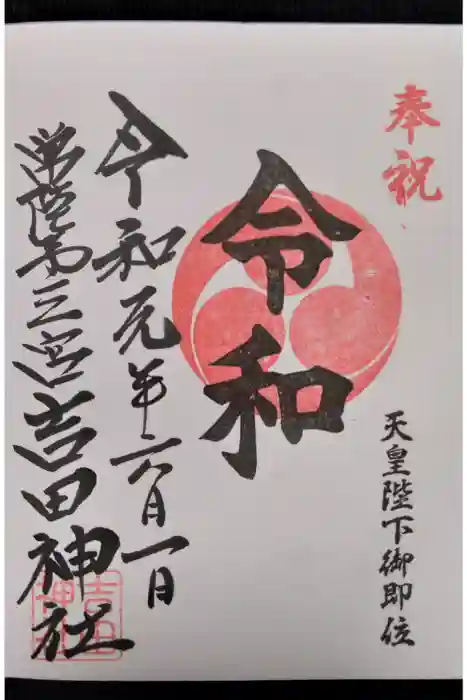 奉祝
天皇陛下御即位
令和
令和元年六月一日
常陸第三宮吉田神社
吉田神社